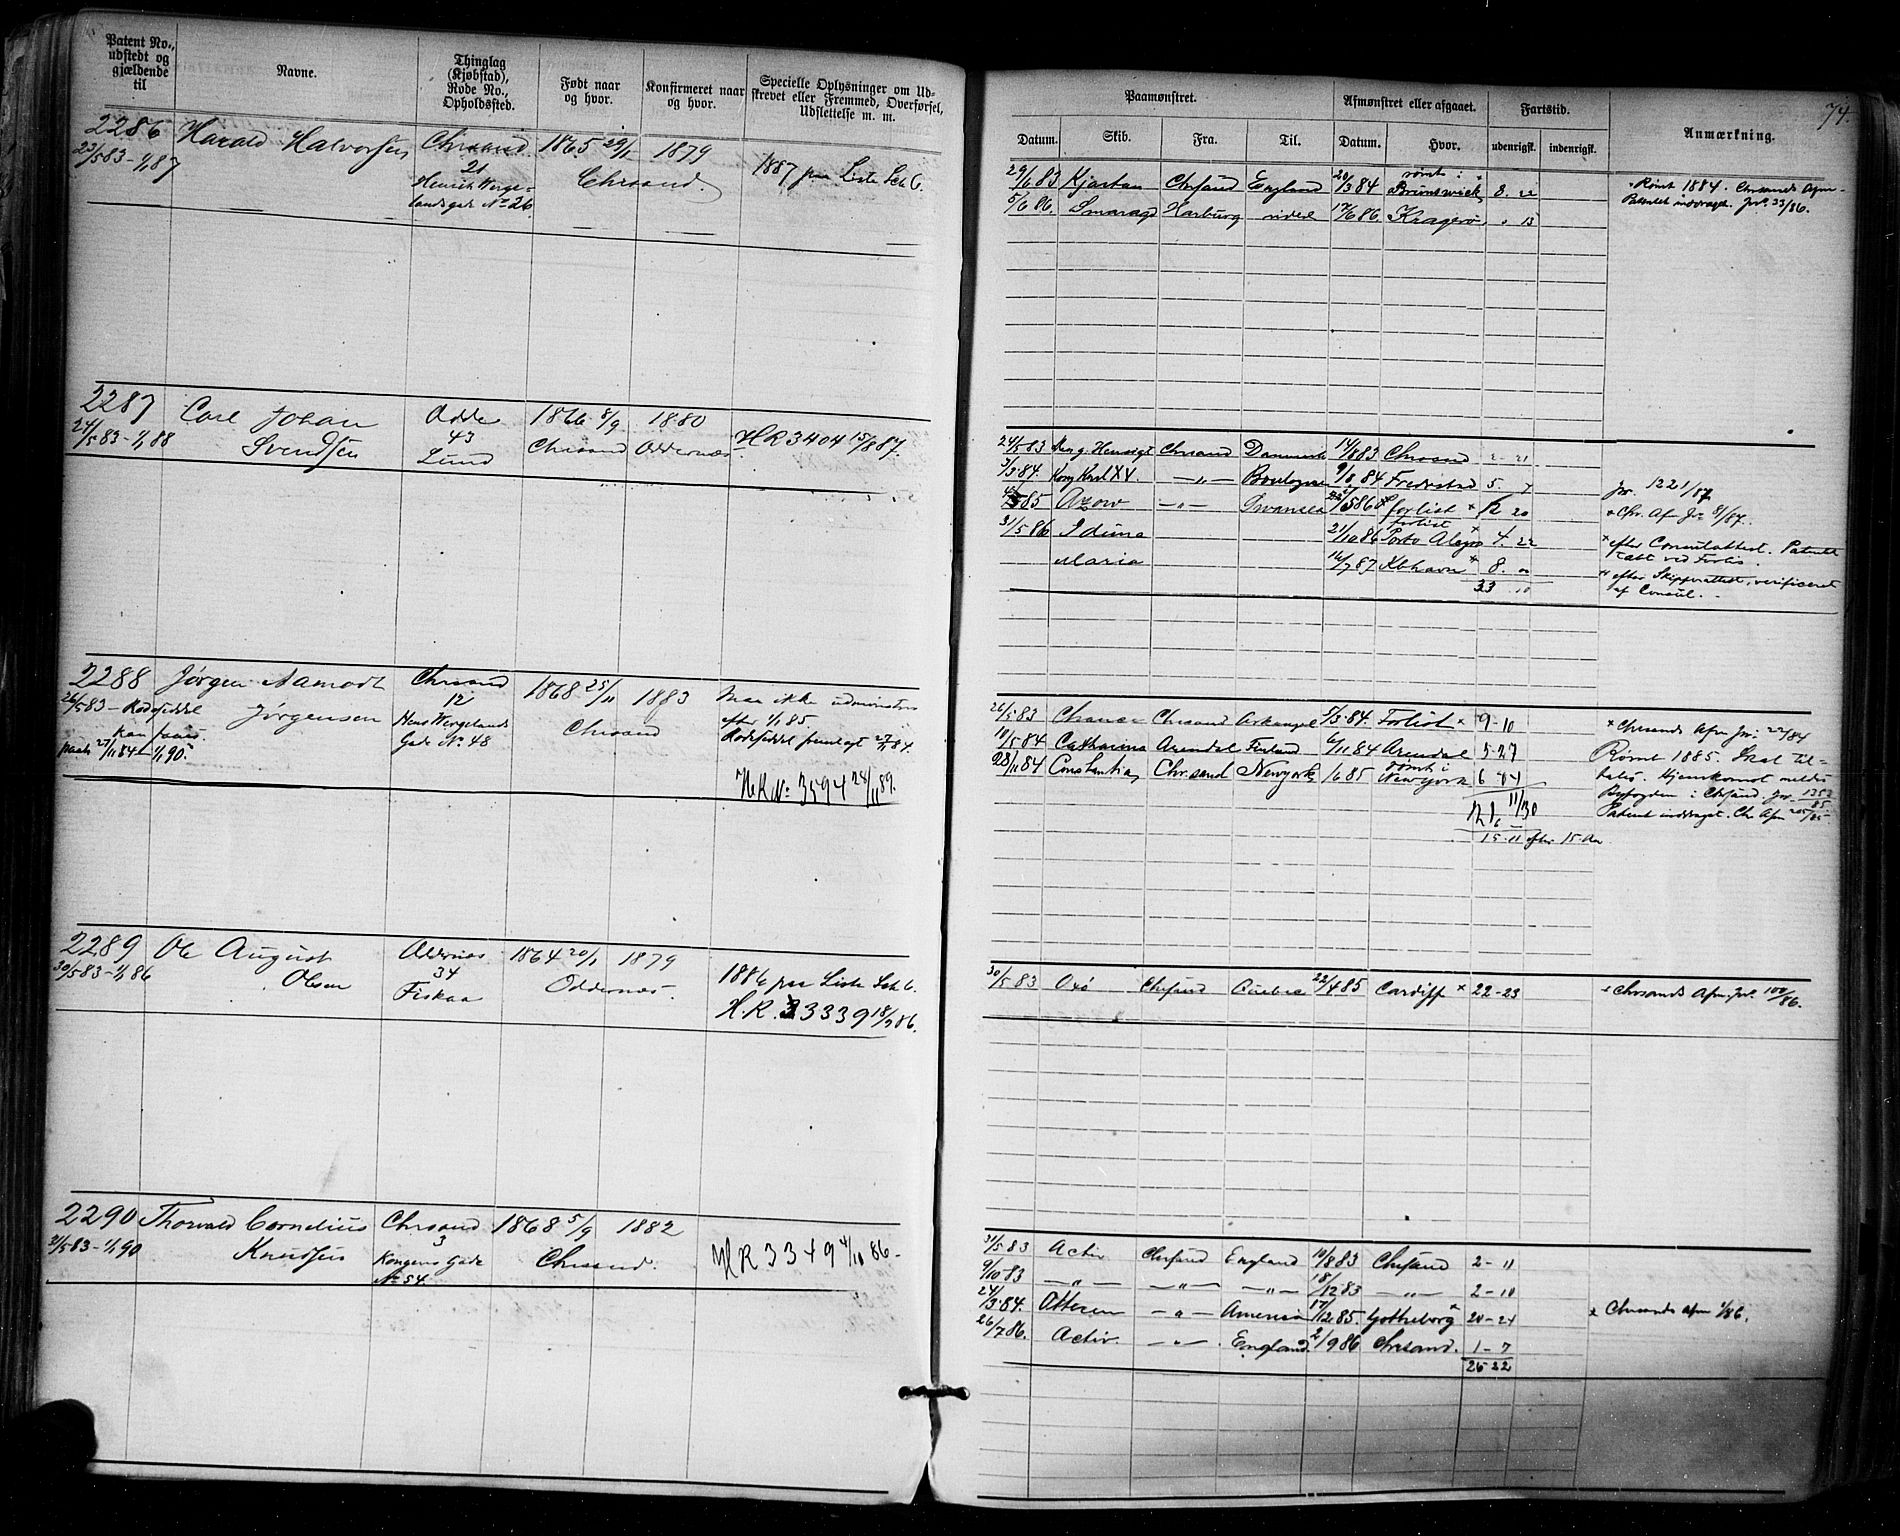 Patent No.,
udstedt og
gjældende
til
Navne.
Thinglag
(Kjøbstad),
Rode No.,
Opholdssted.
Født naar
og hvor.
Konfirmeret naar
og hvor.
Specielle Oplysninger om Ud-
skrevet eller Fremmed, Overførsel,
Udslettelse m. m.
2286 Harald Halvorsen Chrsand 1865 29/1 1879
23/5 83 - 1/1 87
21
Henrik Werge-
landsgade No 26
Chrsand.
1887 paa Liste Sch C.
2287 Carl Johan Odde 1866 8/9 1880
24/5 83 - 1/1 88 Svendsen 43 Chrsand Oddernæs
Lund
HR 3404 15/8 87.
2288 Jørgen Aamodt Chrsand 1868 25/11 1883
26/5 83 - Rodeseddel Jørgensen 12 Chrsand
kan faaes.
27/11 84 - 1/1 90.
Hens Wergelands
Gade No 48
Maa ikke udmønstres
efter 1/1 85
Rodeseddel fremlagt 27/11 84.
HR No 3594 24/11 89.
2289 Ole August Oddernæs 1864 20/1 1879
30/5 83 - 1/1 86 Olsen 34 Oddernæs.
Fiskaa
1886 paa Liste Sch C.
H.R. 3339 18/9 86.
2290 Thorvald Cornelius Chrsand 1868 5/9 1882
31/5 83 - 1/1 90 Knudsen 3 Chrsand.
Kongens Gade
No 54
HR 3349 4/10 86 -
74.
Paamønstret. Afmønstret eller afgaaet. Fartstid. Anmærkning.
Datum. Skib. Fra. Til. Datum. Hvor. udenrigsk. indenrigsk.
29/6 83 Kjartan Chrsand England 20/3 84 rømt i Brunswick 8. 22
5/6 86. Smaragd Harburg videre 17/6 86. Kragerø " 13
Rømt 1884. Chrsands Afm-
Patentet inddraget. Jr. 33/86.
24/5 83 Chrsand Danmark 14/8 83 Chrsand 2 - 21
3/3 84. Kong Karl XV. - " - Boulogne 9/8 84 Fredrstad 5. 7
85 Azow - " - Swansea forlist × 12 20
31/5 86 Iduna 21/10 86 forlist Porto Alegre × 4. 22
Maria 16/7 87 Kbhavn × 8. "
33 10
Jr. 1221/87
× Chr. Af Jr 9/87.
× efter Consulattest. Patentet
tabt ved Forlis.
×× efter Skipperattest, verificeret
af Consul.
26/5 83 Chance Chrsand Arkangel 5/3 84. Forlist × 9 - 10
10/5 84 Catharina Arendal Finland 6/11 84 Arendal 5 - 27
28/11 84 Constantia Chr.sand Newyork 1/6 85 rømt i New York 6
15 - 11 efter 15. Aar
× Chrsands Afm Jr: 22/84
Rømt 1885. Skal til-
tales. Hjemkomst meldes
Byfogden i Chrsand. Jr. 1353/85.
Patent inddraget. Chr Afm
30/5 83 Oxø Chrsand Quebec 22/4 85 Cardiff × 22 - 23
× Chrsands Afm. Jr. 100/86.
31/5 83 Activ Chrsand England 10/8 83 Chrsand 2 - 11
9/10 83 - " - - " - - " - 18/12 83 - " - 2 - 10
24/3 84. Otteren - " - America 17/12 85. Gottheborg × 20 - 24
26/7 86. Activ. - " - England. 2/9 86 Chrsand. 1 - 7
26 22
× Chrsands afm 1/86.